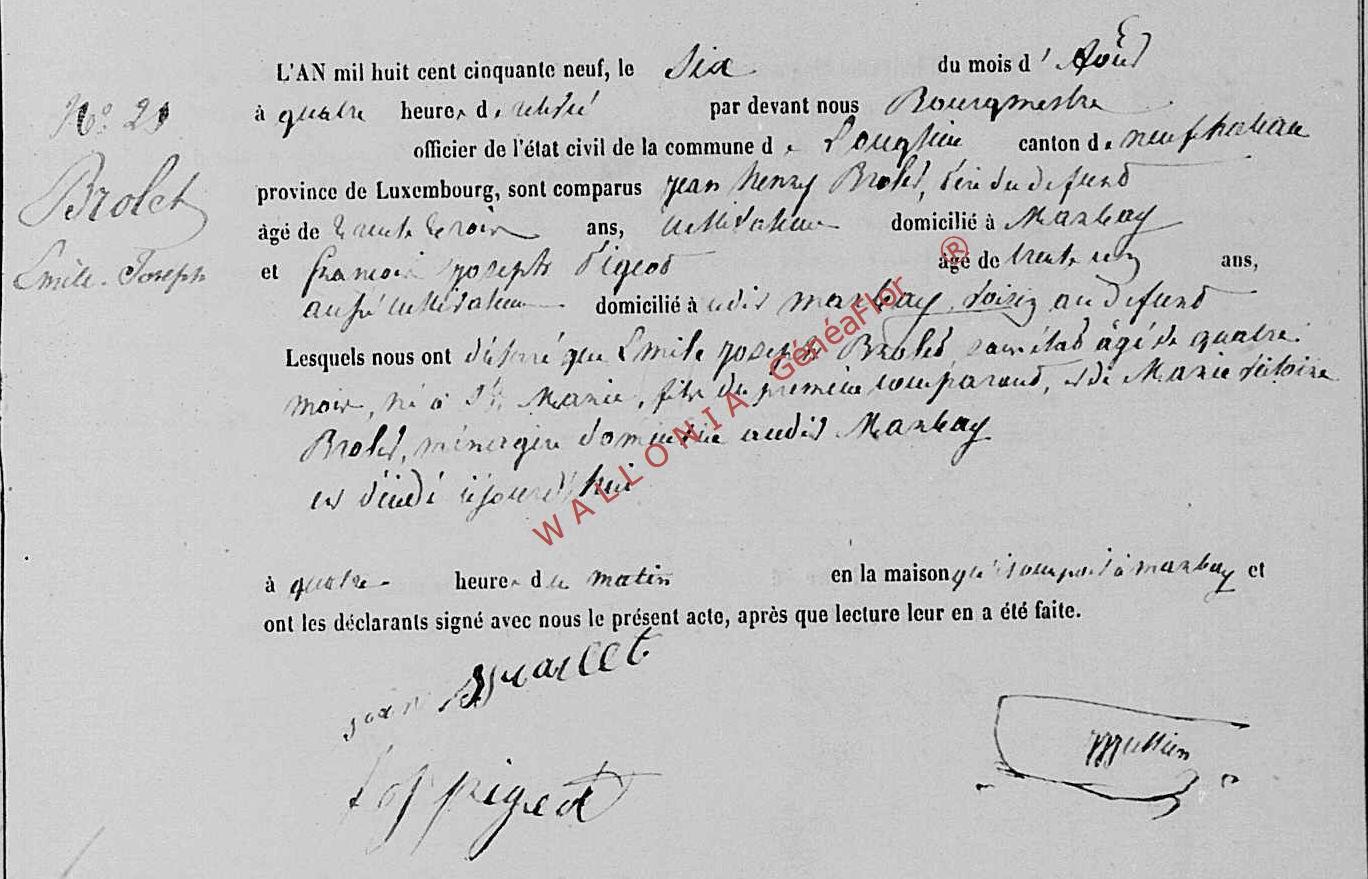 L'AN mil huit cent cinquante neuf, le Six du mois d' Août
N° 21 à quatre heures de relevé par devant nous Bourgmestre
officier de l'état civil de la commune de Longlier canton de neufchateau
Brolet
province de Luxembourg, sont comparus jean henry Brolet, père du defunt
âgé de trente trois ans, cultivateur domicilié à Manbay
Emile-Joseph
et françois joseph Pigeot âgé de trente ans,
aussi cultivateur domicilié à udit manbay, voisin au defunt
Lesquels nous ont déclaré que Emile joseph Brolet, sans état âgé de quatre
mois, né à Ste Marie, fils du premier comparant, et de Marie victoire
Brolet, ménagère domiciliée audit Manbay
est décédé cejourd'hui
à quatre heures du matin en la maison qu'il occupoit à manbay et
ont les déclarants signé avec nous le présent acte, après que lecture leur en a été faite.
jean
pigeot
WALLONIA GénéaFlor ®